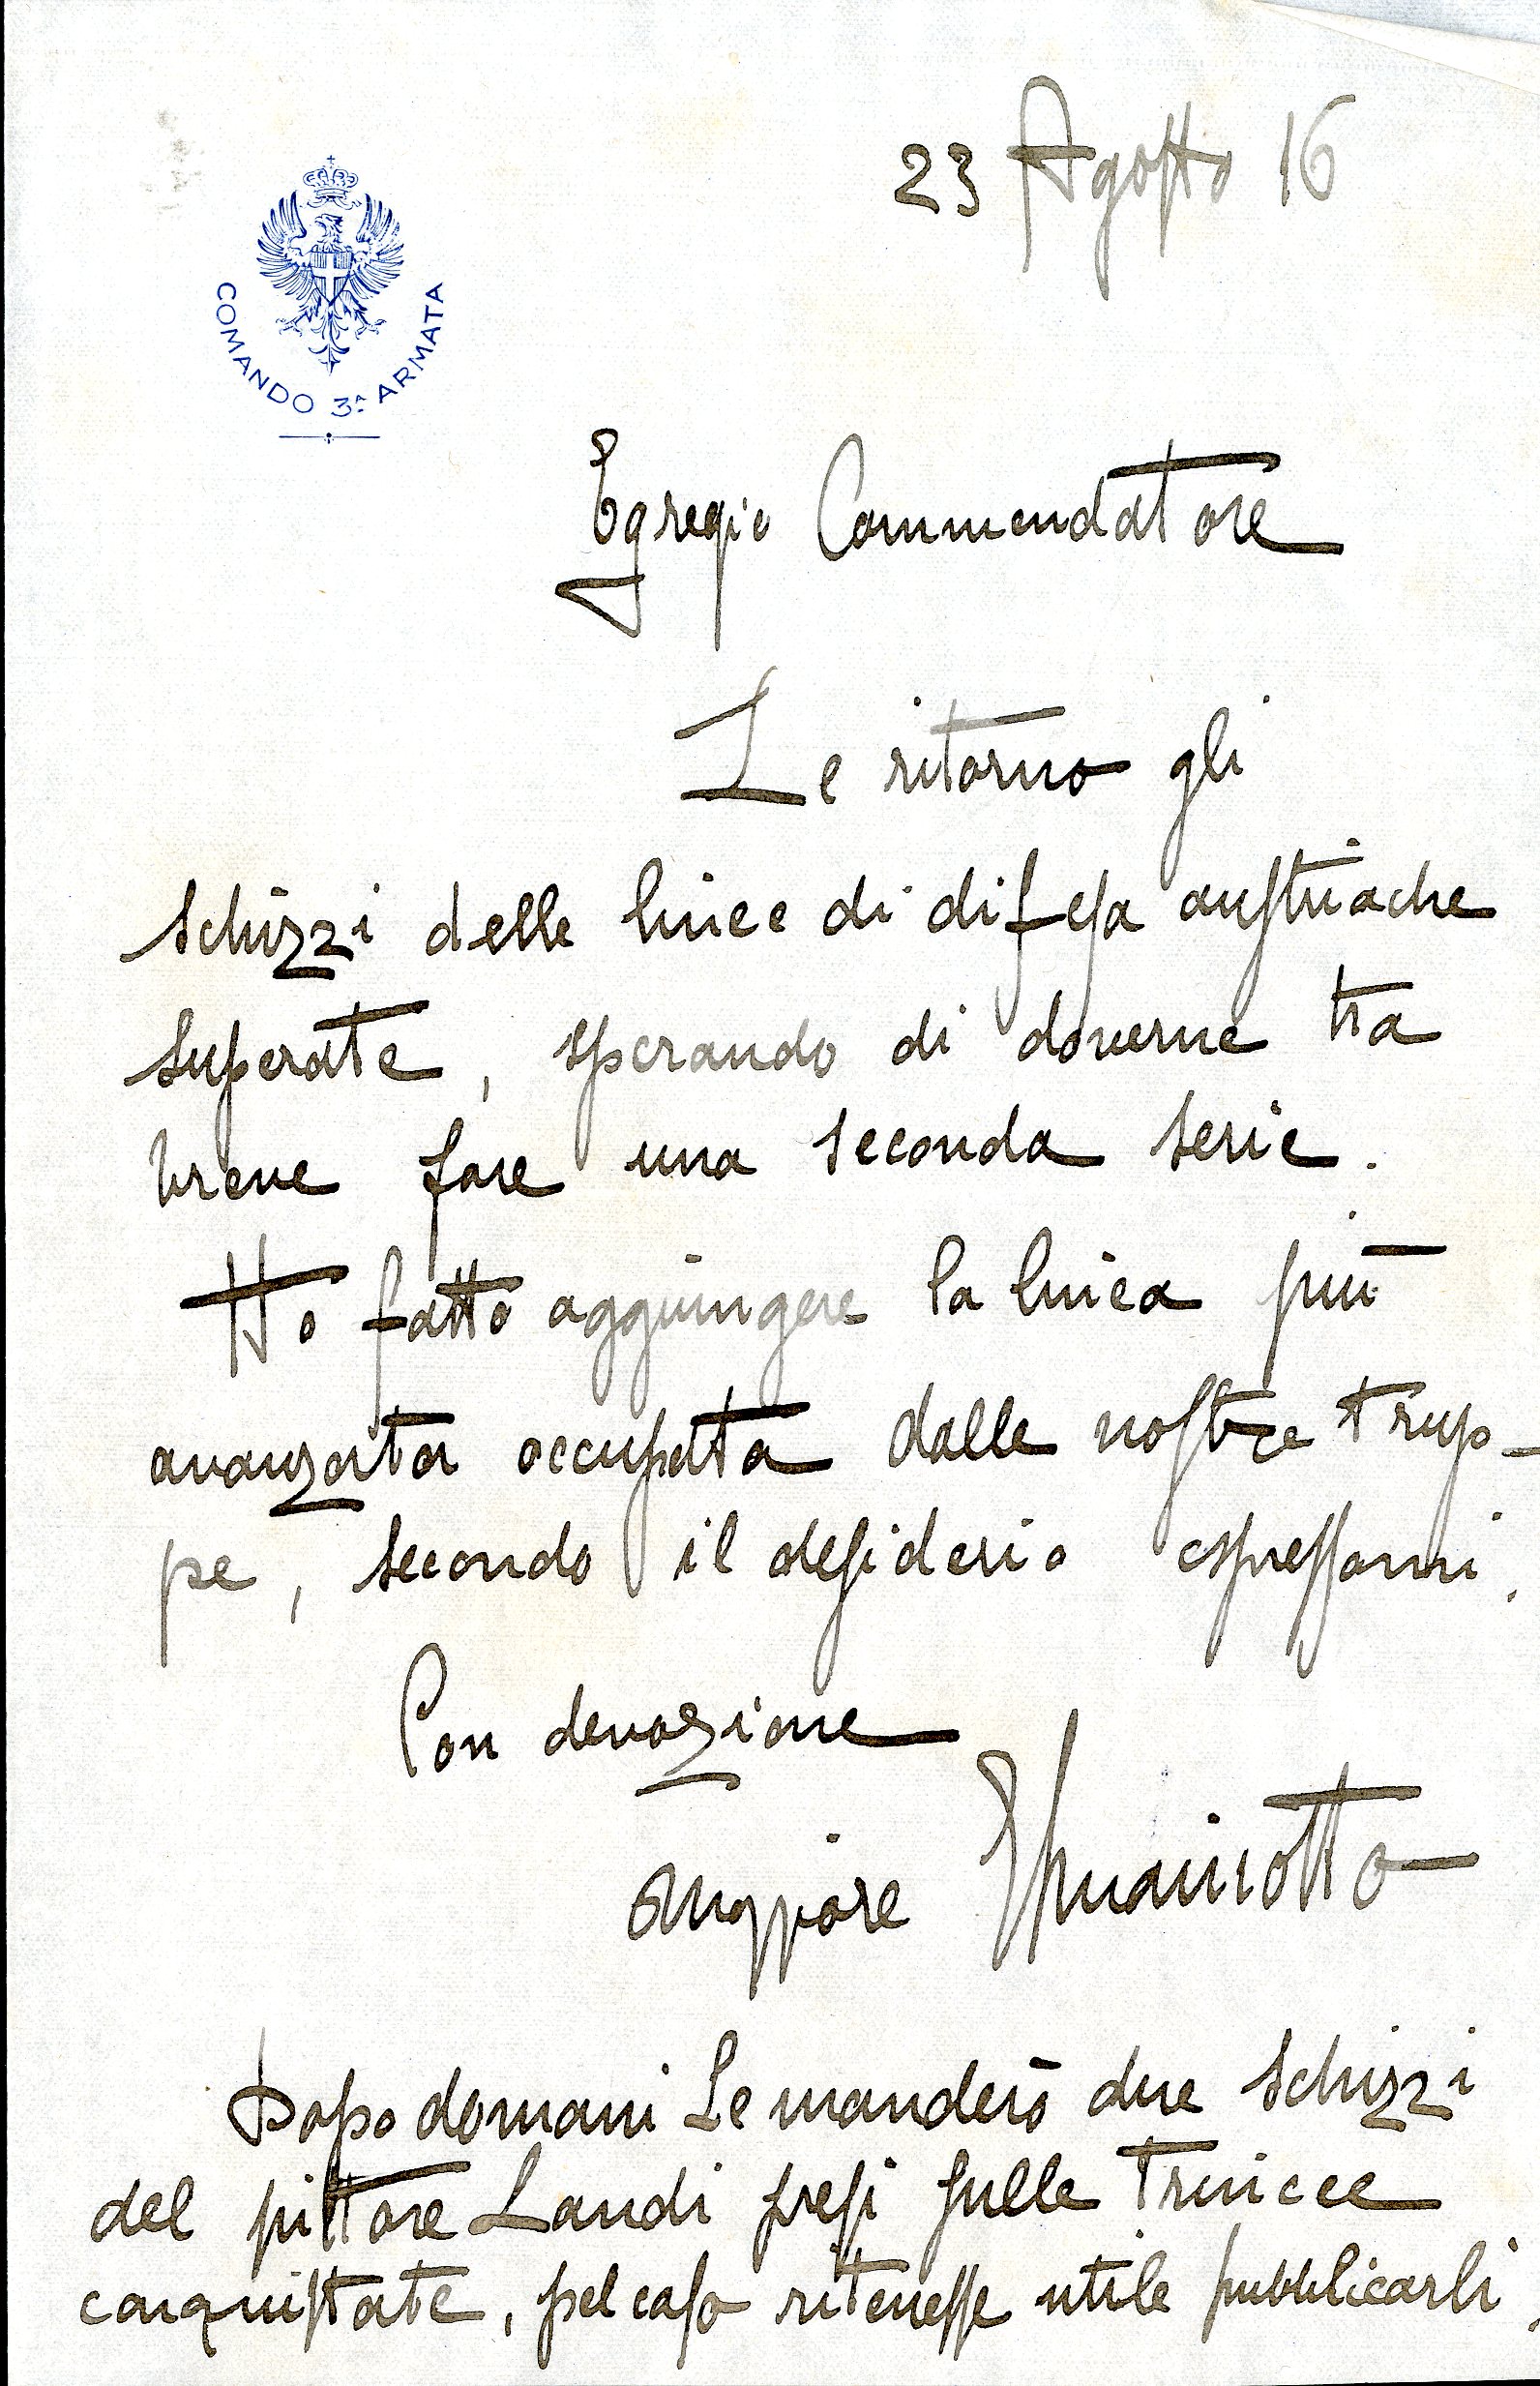 23 Agosto 16
COMANDO 3ª ARMATA
Egregio Commendatore
Le ritorno gli
schizzi delle linee di difesa austriache
superate, sperando di doverne tra
breve fare una seconda serie.
Ho fatto aggiungere la linea più
avanzata occupata dalle nostre trup-
pe, secondo il desiderio espressomi.
Con devozione
Maggiore
Dopodomani Le manderò due schizzi
del pittore Landi presi sulle trincee
conquistate, pel caso ritenesse utile pubblicarli.